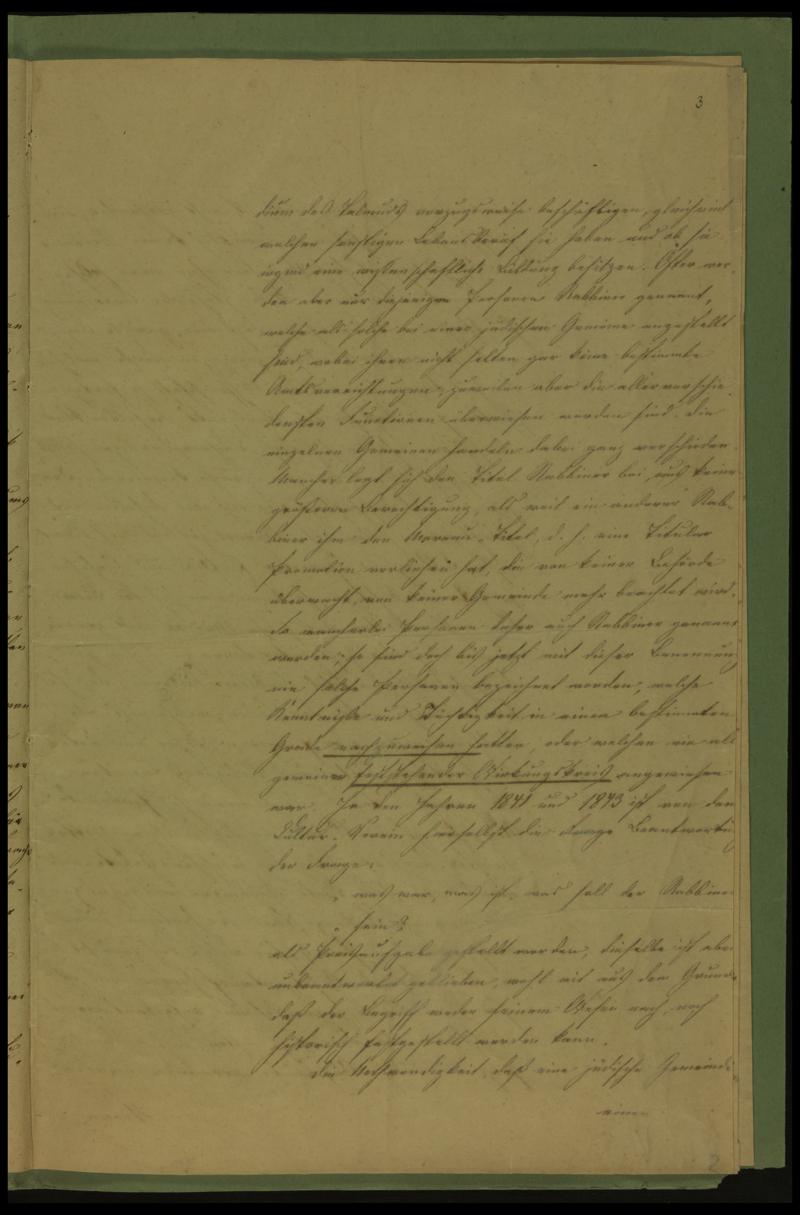 3
dium des Talmuds vorzugsweise beschäftigen, gleichviel
welchen sonstigen Lebensberuf sie haben und ob sie
irgend eine wissenschaftliche Bildung besitzen. Öfter wer-
den aber nur diejenigen Personen Rabbiner genannt,
welche als solche bei einer jüdischen Gemeine angestellt
sind, wobei ihnen nicht selten gar keine bestimmte
Amtsverrichtungen, zuweilen aber die allerverschie-
densten Functionen überwiesen worden sind. Die
einzelnen Gemeinen handeln dabei ganz verschieden.
Mancher legt sich den Titel Rabbiner bei, aus keiner
größeren Berechtigung, als weil ein anderer Rab-
biner ihm den Morenu-Titel, d. h. eine Titular
Promotion verliehen hat, die von keiner Behörde
überwacht, von keiner Gemeinde mehr beachtet wird.
So mancherlei Personen daher auch Rabbiner genannt
werden, so sind doch bis jetzt mit dieser Benennung
nie solche Personen bezeichnet worden, welche
Kenntnisse und Tüchtigkeit in einem bestimmten
Grade nachzuweisen hatten, oder welchen ein all
gemeiner feststehender Wirkungskreis angewiesen
war. In den Jahren 1841 und 1843 ist von dem
Cultur-Verein hieselbst die Beantwortung
der Frage:
„was war, was ist, was soll der Rabbiner
„sein?
als Preisaufgabe gestellt worden, dieselbe ist aber
unbeantwortet geblieben, wohl mit aus dem Grunde,
daß der Begriff weder seinem Wesen nach, noch
historisch festgestellt werden kann.
Die Nothwendigkeit, daß eine jüdische Gemeinde
einen
2